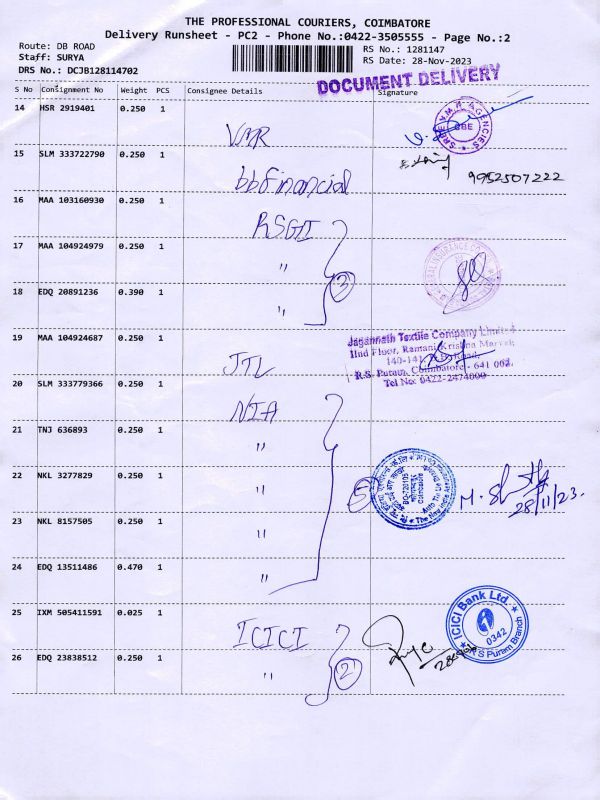 THE PROFESSIONAL COURIERS, COIMBATORE
Delivery Runsheet - PC2 - Phone No.:0422-3505555 - Page No.:2
Route: DB ROAD
RS No.: 1281147
Staff: SURYA
RS Date: 28-Nov-2023
DRS No.: DCJB128114702
DOCUMENT DELIVERY
S No Consignment No Weight PCS Consignee Details Signature
14 HSR 2919401 0.250 1
VMR
AGENCIES
15 SLM 333722790 0.250 1
bbFinancial
9952507222
16 MAA 103160930 0.250 1
RSGI
17 MAA 104924979 0.250 1
"
3
18 EDQ 20891236 0.390 1
"
19 MAA 104924687 0.250 1
JTL
Jagannath Textile Company Limited
IInd Floor, Ramani Krishna
140-141,
R.S. Puram, Coimbatore - 641 002.
Tel No: 0422-2474000
20 SLM 333779366 0.250 1
NIA
21 TNJ 636893 0.250 1
"
22 NKL 3277829 0.250 1
"
5
28/11/23.
23 NKL 8157505 0.250 1
"
24 EDQ 13511486 0.470 1
"
25 IXM 505411591 0.025 1
ICICI
ICICI Bank Ltd.
0342
R S Puram Branch
26 EDQ 23838512 0.250 1
"
2